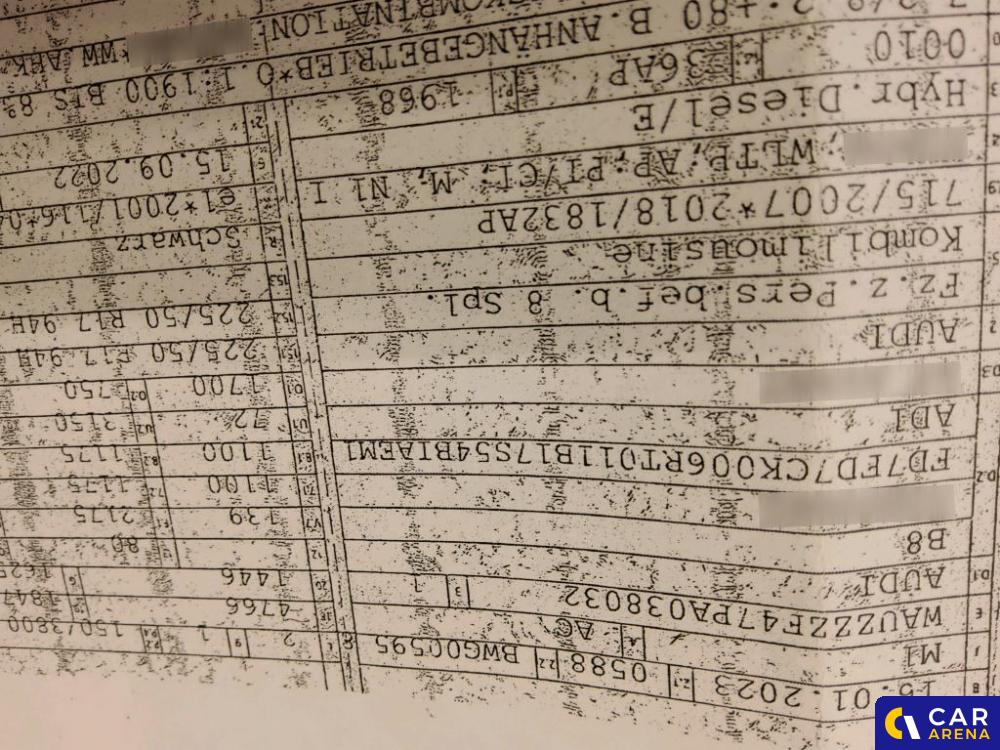 16.01.2023 0588 BWG00595 2 1 150/3800
M1 AC 4766 1847
WAUZZZF47PA038032 1 1446 1625
AUDI 80
B8 139 2175
1100 1175
FD7FD7CK006RT011B17S54BTAEM1 1100 1175
AD1 72 3150
1700 750
225/50 R17 94H
AUDI 225/50 R17 94H
Fz.z.Pers.bef.b. 8 Spl.
Kombilimousine Schwarz
715/2007*2018/1832AP e1*2001/116*04
; WLTP; AP; PI/CI; M, N1 I 15.09.2022
Hybr.Diesel/E
0010 36AP 1968
2.:+80 B.ANHÄNGEBETRIEB*O.1:1900 BIS 8%
KOMBINATION *WW AHK
CAR
ARENA